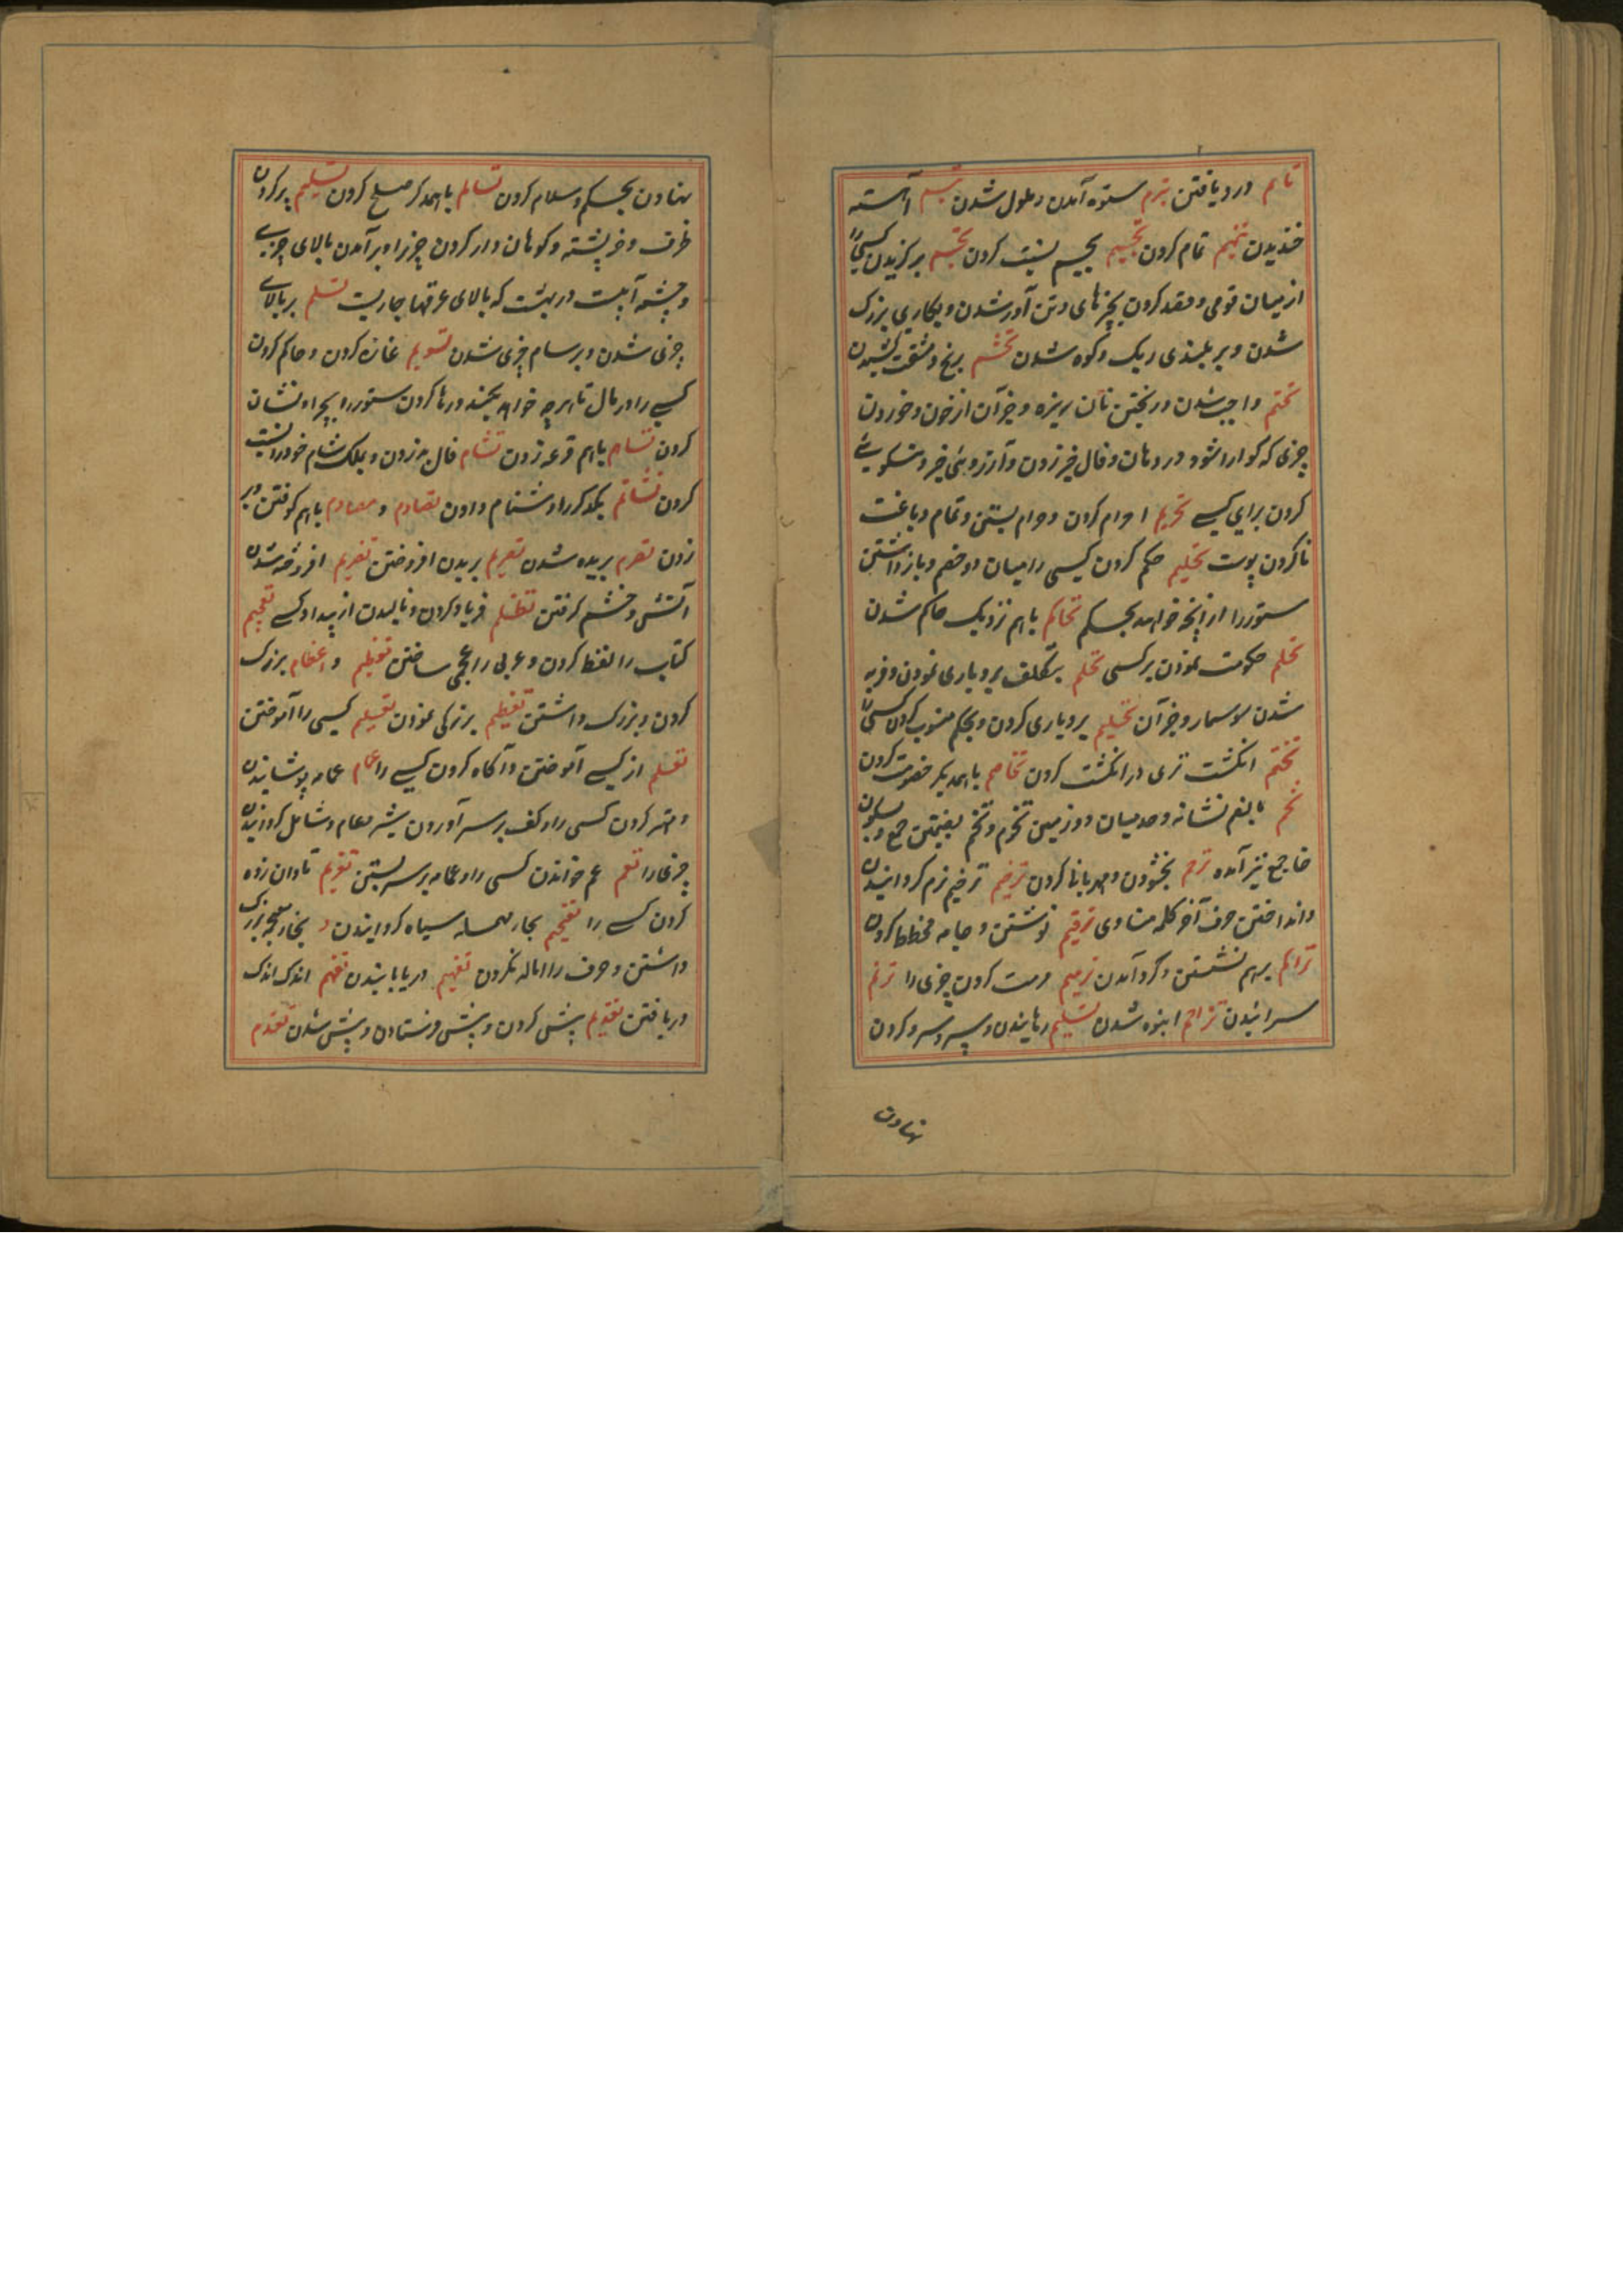 تالم درد یافتن تبرم ستوه آمدن و ملول شدن تبسم آهسته
خندیدن تتمیم تمام کردن تجسیم بجسم نسبت کردن تجسم برگزیدن کسی را
از میان قومی و قصد کردن بچیزهای و تن آور شدن و بکاری بزرک
شدن و بر بلندی ریک و کوه شدن تجشم رنج و مشقت کشیدن
تحتم واجب شدن و ریختن نان ریزه و جز آن از خوان و خوردن
چیزی که کوارا شود در دهان و فال خیر زدن و آرزومندی خیر و نیکویی
کردن برای کسی تحریم احرام کردن و حرام بستن و تمام دباغت
نا کردن پوست تحکیم حکم کردن کسی را میان دو خصم و باز داشتن
ستور را از آنچه خواهد بحکم تحاکم باهم نزدیک حاکم شدن
تحکم حکومت نمودن بر کسی تحلم بتکلف بردباری نمودن و فربه
شدن سوسمار و جز آن تحلیم بردباری کردن و بحلم منسوب کردن کسی را
تختم انکشتری در انکشت کردن تخاصم با همدیکر خصومت کردن
تخم بالضم نشانه و حد میان دو زمین تخوم و تخم بضمتین جمع و بسکون
خا جمع نیز آمده ترحم بخشودن و مهربانی کردن ترخیم نرم کردانیدن
و انداختن حرف آخر کلمه منادی ترقیم نوشتن و جامه مخطط کردن
تراکم برهم نشستن و کرد آمدن ترمیم مرمت کردن چیزی را ترنم
سرائیدن تزاحم انبوه شدن تسلیم رهانیدن و سپردن و کردن
نهادن
نهادن بحکم و سلام کردن تسالم با همدکر صلح کردن تسنیم پر کردن
ظرف و خرپشته و کوهان وار کردن چیز را و بر آمدن بالای چیزی
و چشمه آبیست در بهشت که بالای غرفها جاریست تسنم بر بالای
چیزی شدن تسویم غازه کردن و حاکم کردن
کسی را در مال تا هرچه خواهد بکند و رها کردن ستور را بچرا و نشان
کردن تساهم باهم قرعه زدن تشام فال بد زدن و بملک شام خود را نسبت
کردن تشاتم یکدکر را دشنام دادن تصادم و مصادم باهم کوفتن و بر
زدن تصرم بریده شدن تصریم بریدن افروختن تضریم افروخته شدن
آتش و خشم کرفتن تظلم فریاد کردن و نالیدن از بیداد کسی تعجیم
کتاب را نقط کردن و عربی را عجمی ساختن تعظیم و اعظام بزرک
کردن و بزرک داشتن تعظیم بزرکی نمودن تعلیم کسی را آموختن
تعلم از کسی آموختن و آکاه کردن کسی را تعمیم عمامه پوشانیدن
و مهتر کردن کسی را و کف بر سر آوردن شیر و عام و شامل کردانیدن
چیزی را تعمم عم خواندن کسی را و عمامه بر سر بستن تغریم تاوان زده
کردن کسی را تفحیم بحاء مهمله سیاه کردانیدن و بخاء معجمه بزرک
داشتن و حرف را اماله نکردن تفهیم دریابانیدن تفهم اندک اندک
دریافتن تقدیم پیش کردن و پیش فرستادن و پیش شدن تقدم